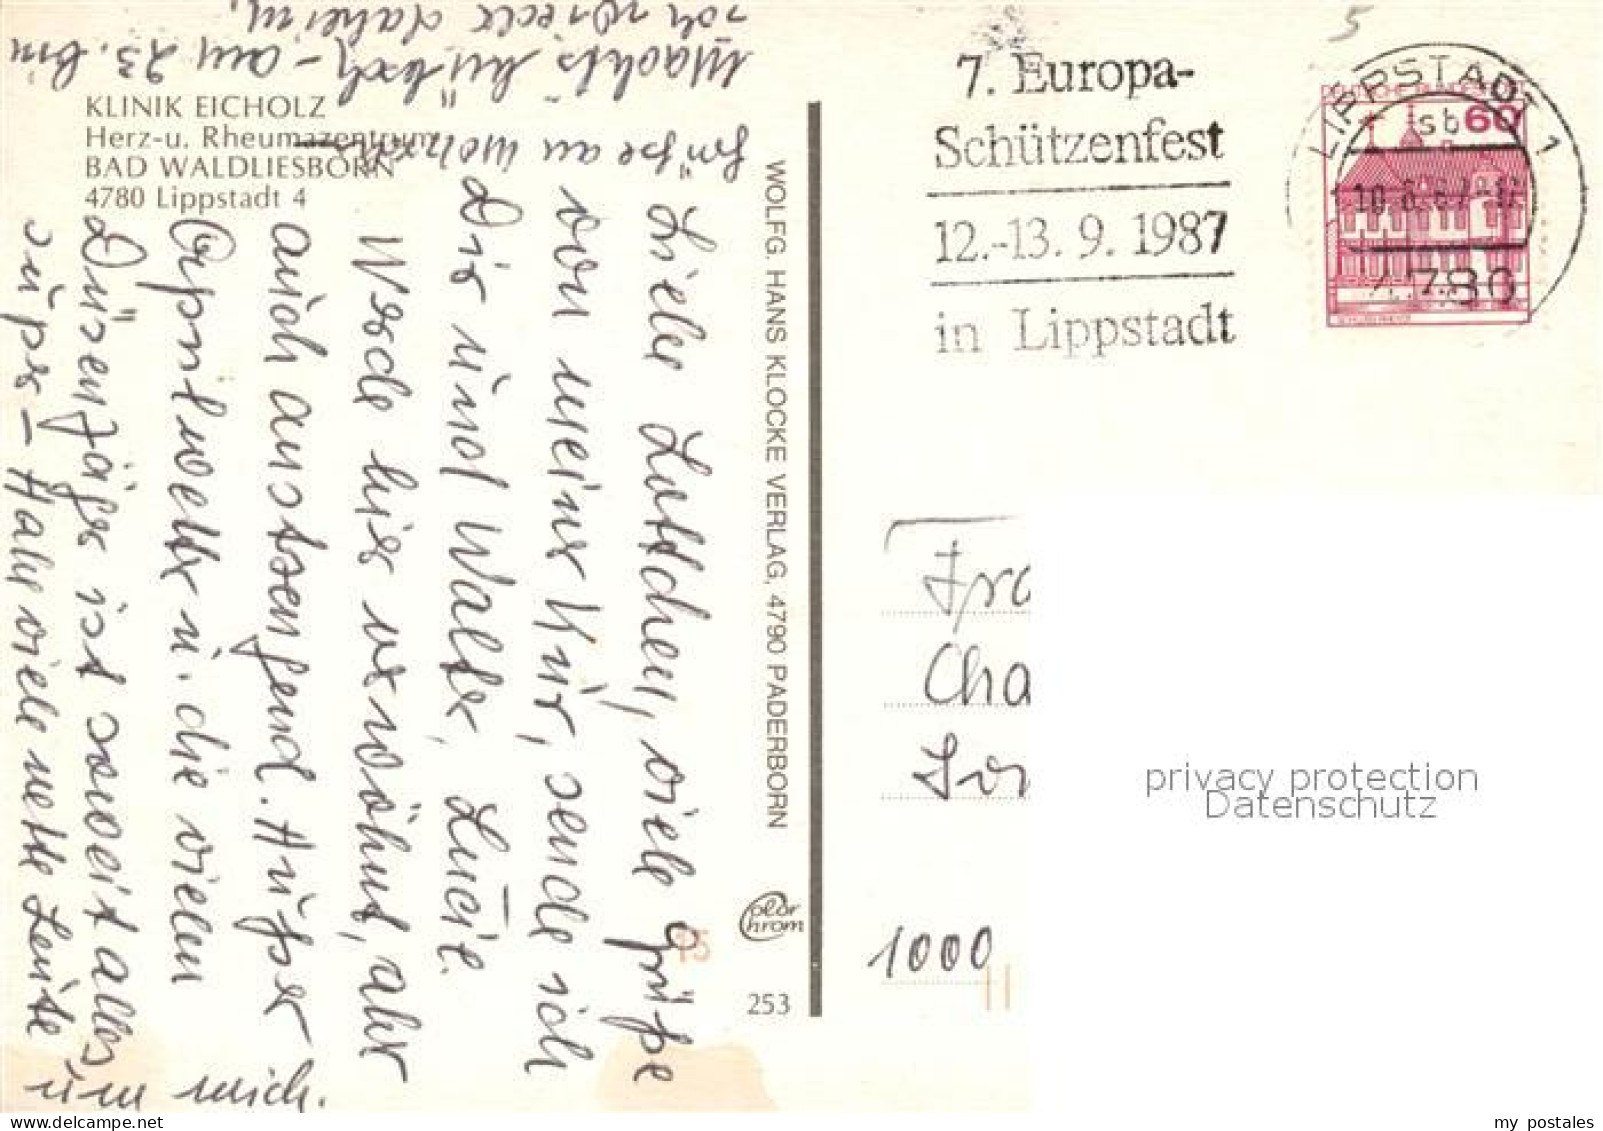 KLINIK EICHOLZ
Herz-u. Rheumazentrum
BAD WALDLIESBORN
4780 Lippstadt 4
Liebe Lottchen, viele Grüße
von meiner Kur, sende ich
Dir und Walter, Lucie.
Werde hier verwöhnt, aber
auch anstrengend. Außer
Orpnil wetter u. die vielen
Düsenjäger ist soweit alles
super - Habe viele nette Leute
um mich.
Grüße an
Machts hübsch - am 23. bin
ich wieder daheim.
WOLFG. HANS KLOCKE VERLAG, 4790 PADERBORN
Color
Chrom
253
7. Europa-
Schützenfest
12.-13. 9. 1987
in Lippstadt
5
LIPPSTADT 1
sb
60
4780
Fra
Cha
1000
15
privacy protection
Datenschutz
my postales